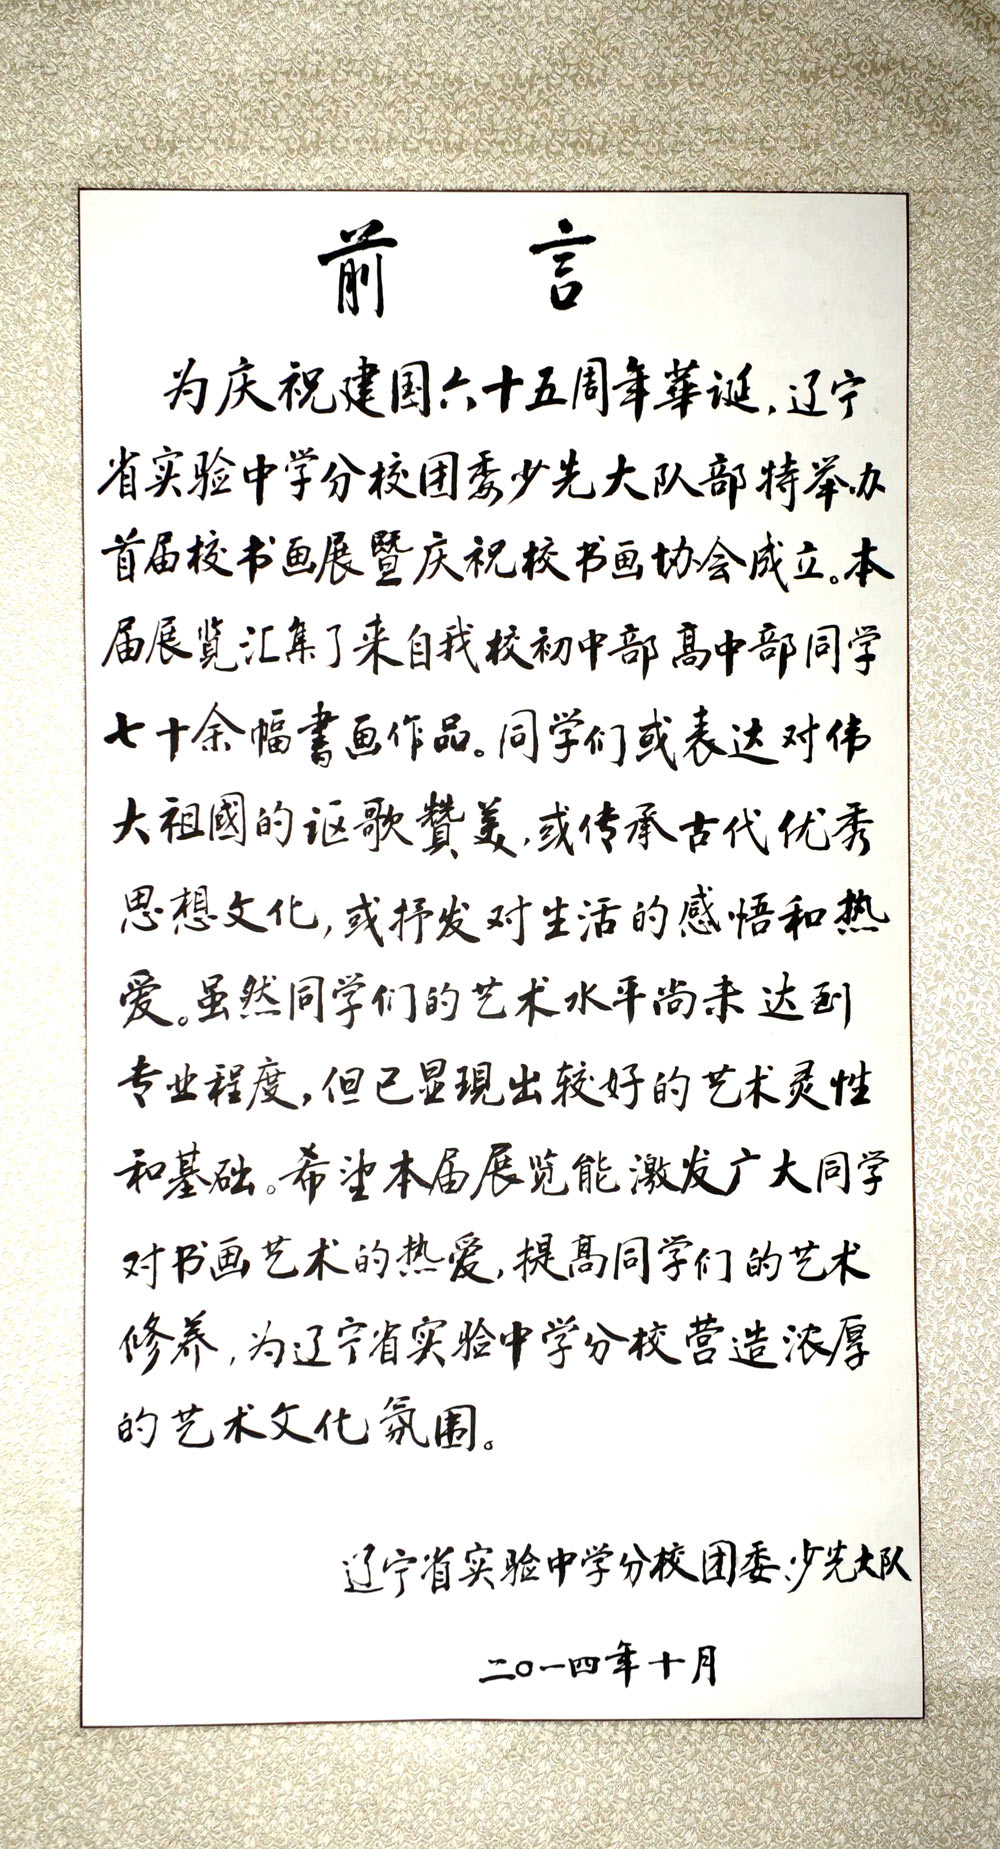 前言
为庆祝建国六十五周年華诞，辽宁
省实验中学分校团委少先大队部特举办
首届校书画展暨庆祝校书画协会成立。本
届展览汇集了来自我校初中部高中部同学
七十余幅書画作品。同学们或表达对伟
大祖國的讴歌贊美，或传承古代优秀
思想文化，或抒发对生活的感悟和热
爱。虽然同学们的艺术水平尚未达到
专业程度，但已显現出较好的艺术灵性
和基础。希望本届展览能激发广大同学
对书画艺术的热爱，提高同学们的艺术
修养，为辽宁省实验中学分校营造浓厚
的艺术文化氛围。
辽宁省实验中学分校团委、少先大队
二〇一四年十月